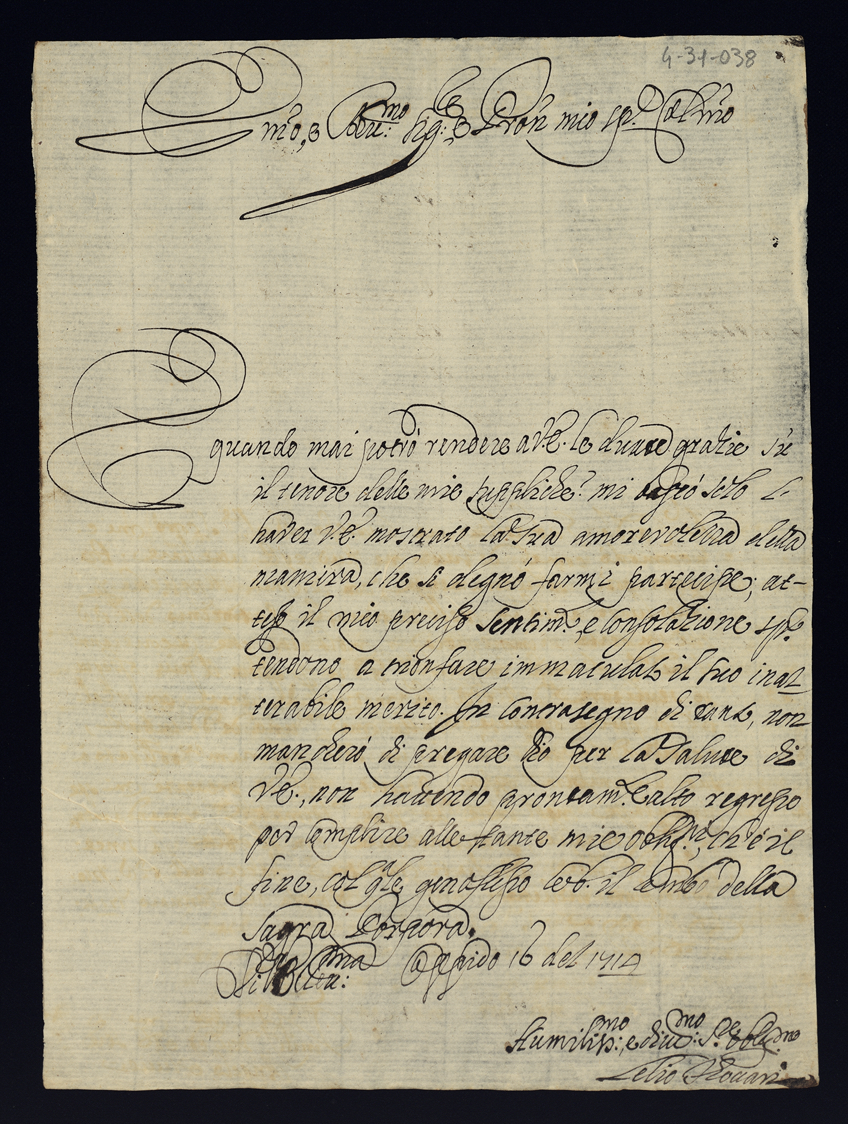 4-31-038
Em̃o, e Reu:mo Sig:re e Pron mio sp.e Col.mo
quando mai potrò rendere a V.E. le douute gratie sù
il tenore delle mie suppliche? mi bastò solo l'
hauer V.E. mostrato la Sua amoreuolezza della
maniera, che si degnò farmi partecipe, at-
teso il mio preciso sentim.to, e consolazione
tendono a trionfare immaculato il suo inal-
terabile merito. In contrasegno di tanto, non
mancherò di pregare Dio per la Salute di
V.E., non hauendo prontam.te alto regresso
per complire alle tante mie oblig.ni, ch'è il
fine, col q̃le genuflesso bacio il lembo della
Sagra Porpora.
Di V.E. Reu:ma Oppido 16 del 1714
Humiliss:mo, e diuo:mo S.re oblig.mo
Lelio